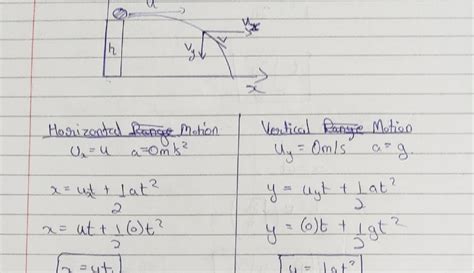 u
h
vₓ
v
v_y
x
Horizontal Range Motion
Uₓ = u a = 0m/s²
x = uₓt + 1/2 at²
x = ut + 1/2 (0)t²
x = ut
Vertical Range Motion
U_y = 0m/s a = g
y = u_yt + 1/2 at²
y = (0)t + 1/2 gt²
y = 1gt²